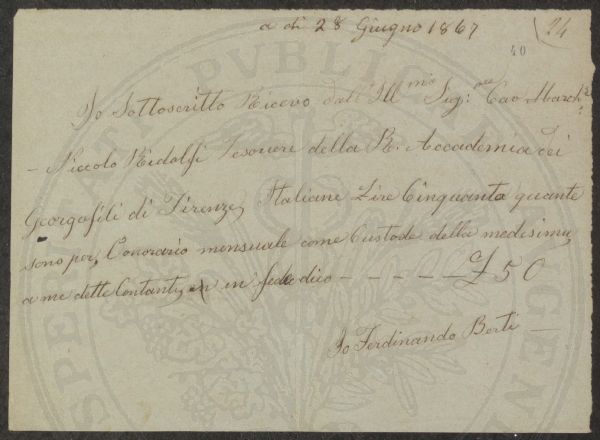 a dì 28 Giugno 1867
24
40
Io Sottoscritto Ricevo dall'Ill.mo Sig:re Cav March:
- Niccolo Ridolfi Tesoriere della R. Accademia dei
Georgofili di Firenze, Italiane Lire Cinquanta quante
sono per, l'onorario mensuale come Custode della medesima,
a me dette Contanti, in fede dico - - - - - £ 50
Io Ferdinando Berti -
PVBLICAE
PROSPERITATI